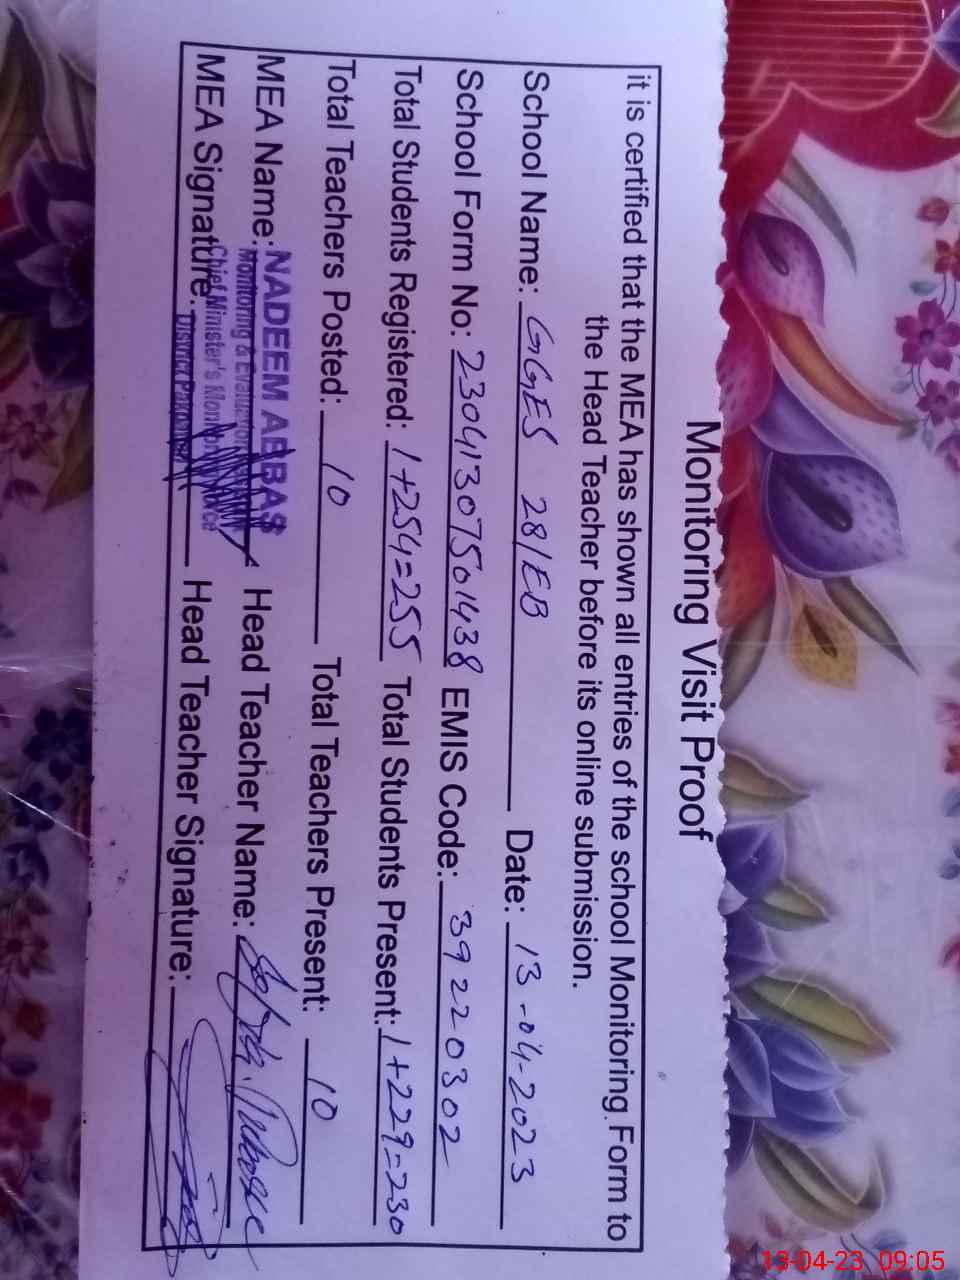 Monitoring Visit Proof
it is certified that the MEA has shown all entries of the school Monitoring Form to
the Head Teacher before its online submission.
School Name: GGES 28/EB Date: 13-04-2023
School Form No: 23041307501438 EMIS Code: 39220302
Total Students Registered: 1+254=255 Total Students Present: 1+229=230
Total Teachers Posted: 10 Total Teachers Present: 10
MEA Name: NADEEM ABBAS Head Teacher Name:
Monitoring & Evaluation
MEA Signature: Head Teacher Signature:
Chief Minister's
District Pakpattan
13-04-23 09:05